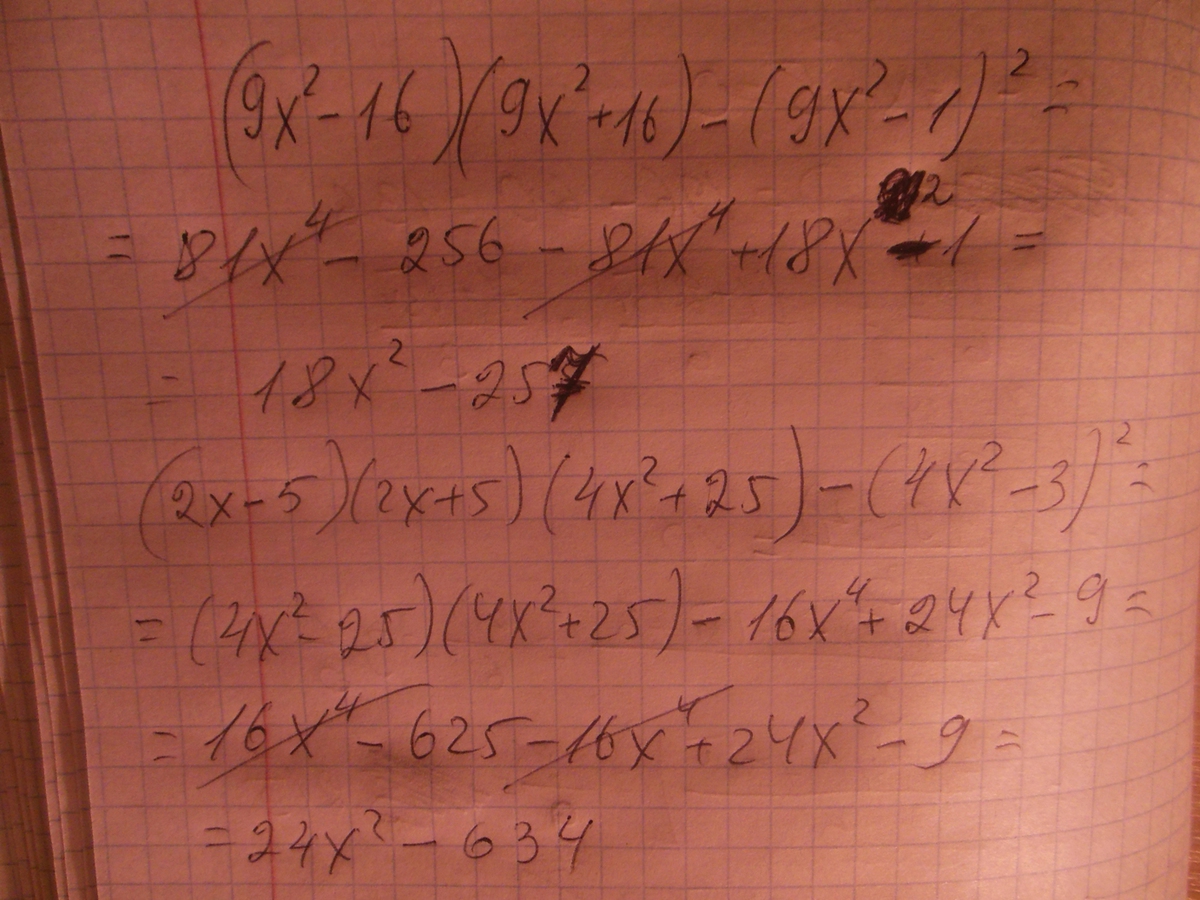 (9x² - 16)(9x² + 16) - (9x² - 1)² =
= 81x⁴ - 256 - 81x⁴ + 18x² - 1 =
= 18x² - 257
(2x - 5)(2x + 5)(4x² + 25) - (4x² - 3)² =
= (4x² - 25)(4x² + 25) - 16x⁴ + 24x² - 9 =
= 16x⁴ - 625 - 16x⁴ + 24x² - 9 =
= 24x² - 634